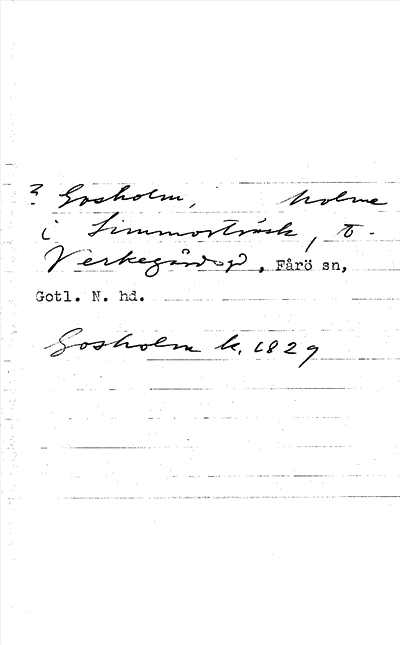 ? Gosholm, holme
i Limmorträsk, t.
Verkegårds gd, Fårö sn,
Gotl. N. hd.
Gosholm k. 1829